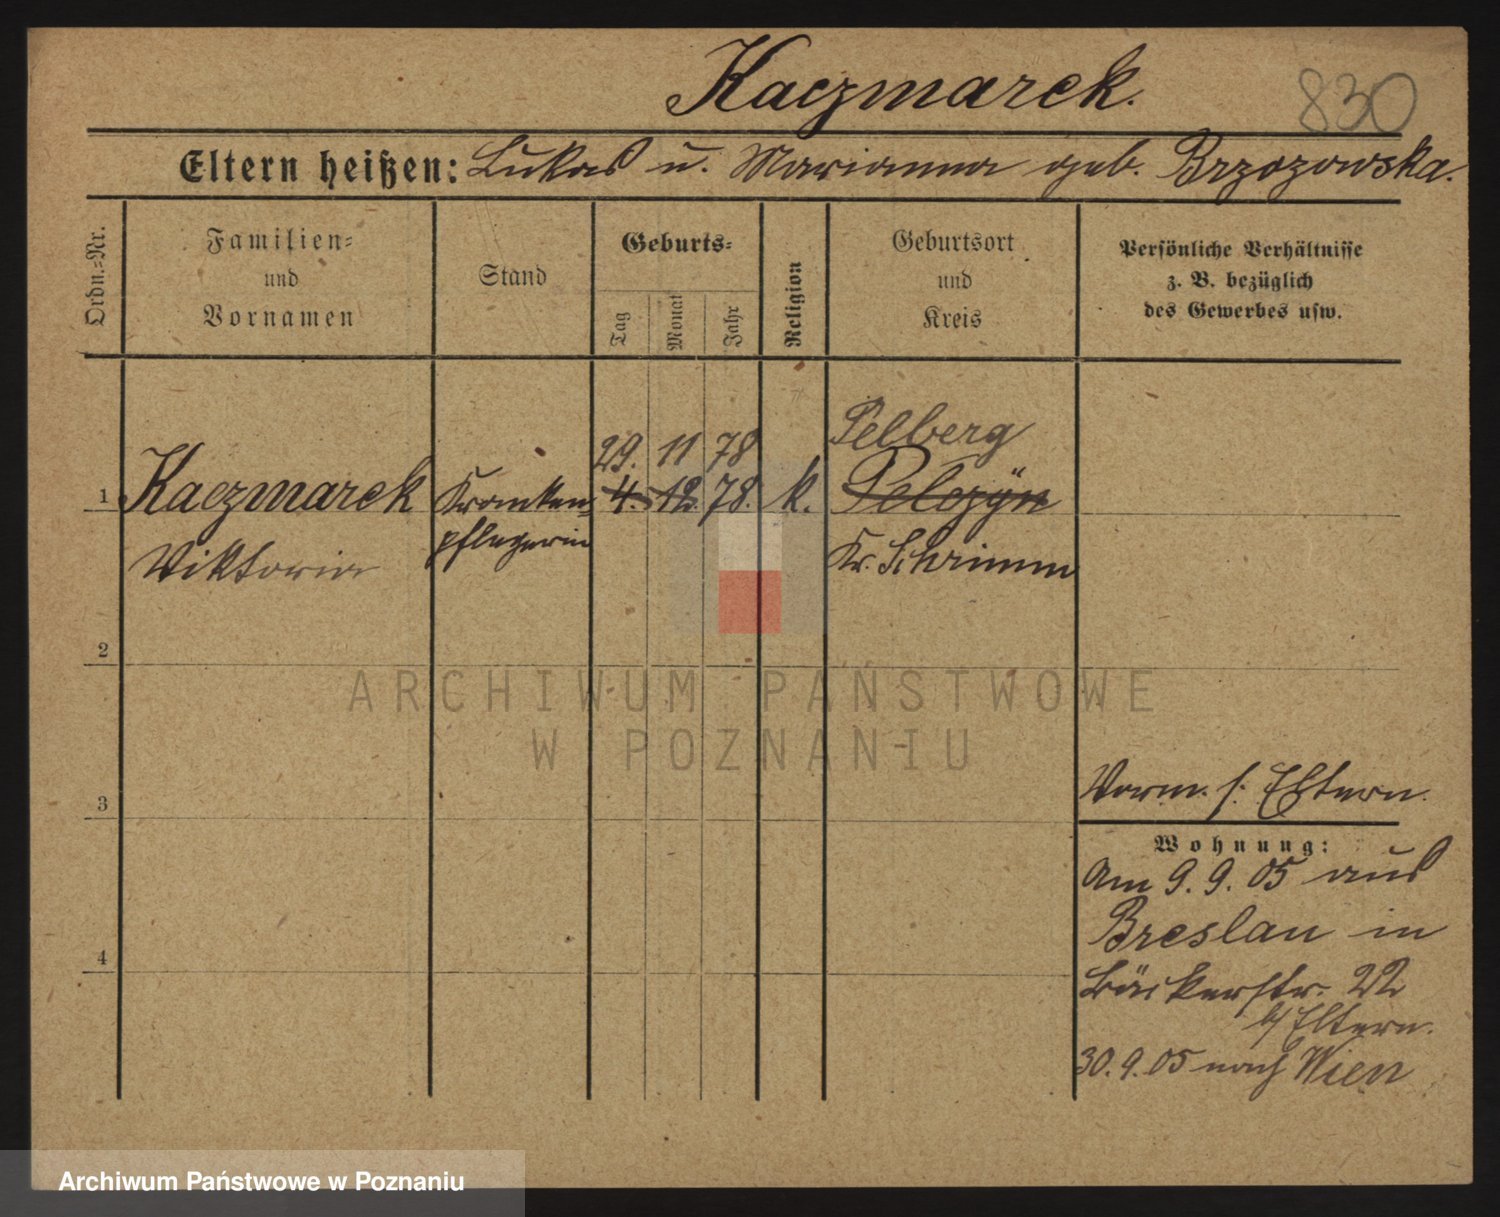 Kaczmarek.
830
Eltern heißen: Lukas u. Marianna geb. Brzozowska.
Ordn.-Nr.
Familien-
und
Vornamen
Stand
Geburts-
Tag
Monat
Jahr
Religion
Geburtsort
und
Kreis
Persönliche Verhältnisse
z. B. bezüglich
des Gewerbes usw.
29. 11 78
Pelberg
1 Kaczmarek Kranken- 4. 12. 78. k. Pelczyn
Viktoria pflegerin Kr. Schrimm
2
ARCHIWUM PAŃSTWOWE
W POZNANIU
3
Vorm. s. Eltern.
Wohnung:
Am 9. 9. 05 aus
Breslau in
4
Bäckerstr. 22
b/ Eltern.
30. 9. 05 nach Wien
Archiwum Państwowe w Poznaniu